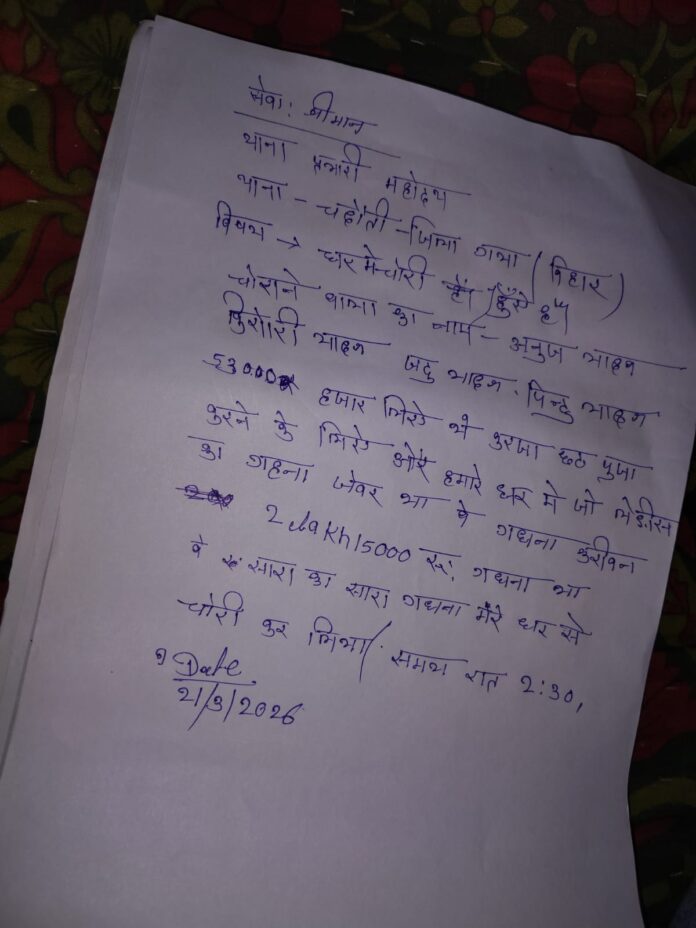 सेवा: श्रीमान
थाना प्रभारी महोदय
थाना - चदौती - जिला गया (बिहार)
विषय → घर मे चोरी हुँई है
चोराने वाला का नाम - अनुज यादव
किशोरी यादव जदु यादव. पिन्टु यादव
53000 हजार लिऐ थे करजा छठ पुजा
करने के लिऐ और हमारे घर मे जो लेडीस
का गहना जेवर था वे गधना करीवन
2 Lakh 15000 रू. गधना था
वे सारा का सारा गधना मेरे घर से
चोरी कर लिया। समय रात 2:30,
Date
21/3/2026